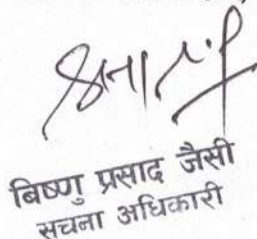 बिष्णु प्रसाद जैसी
सचना अधिकारी